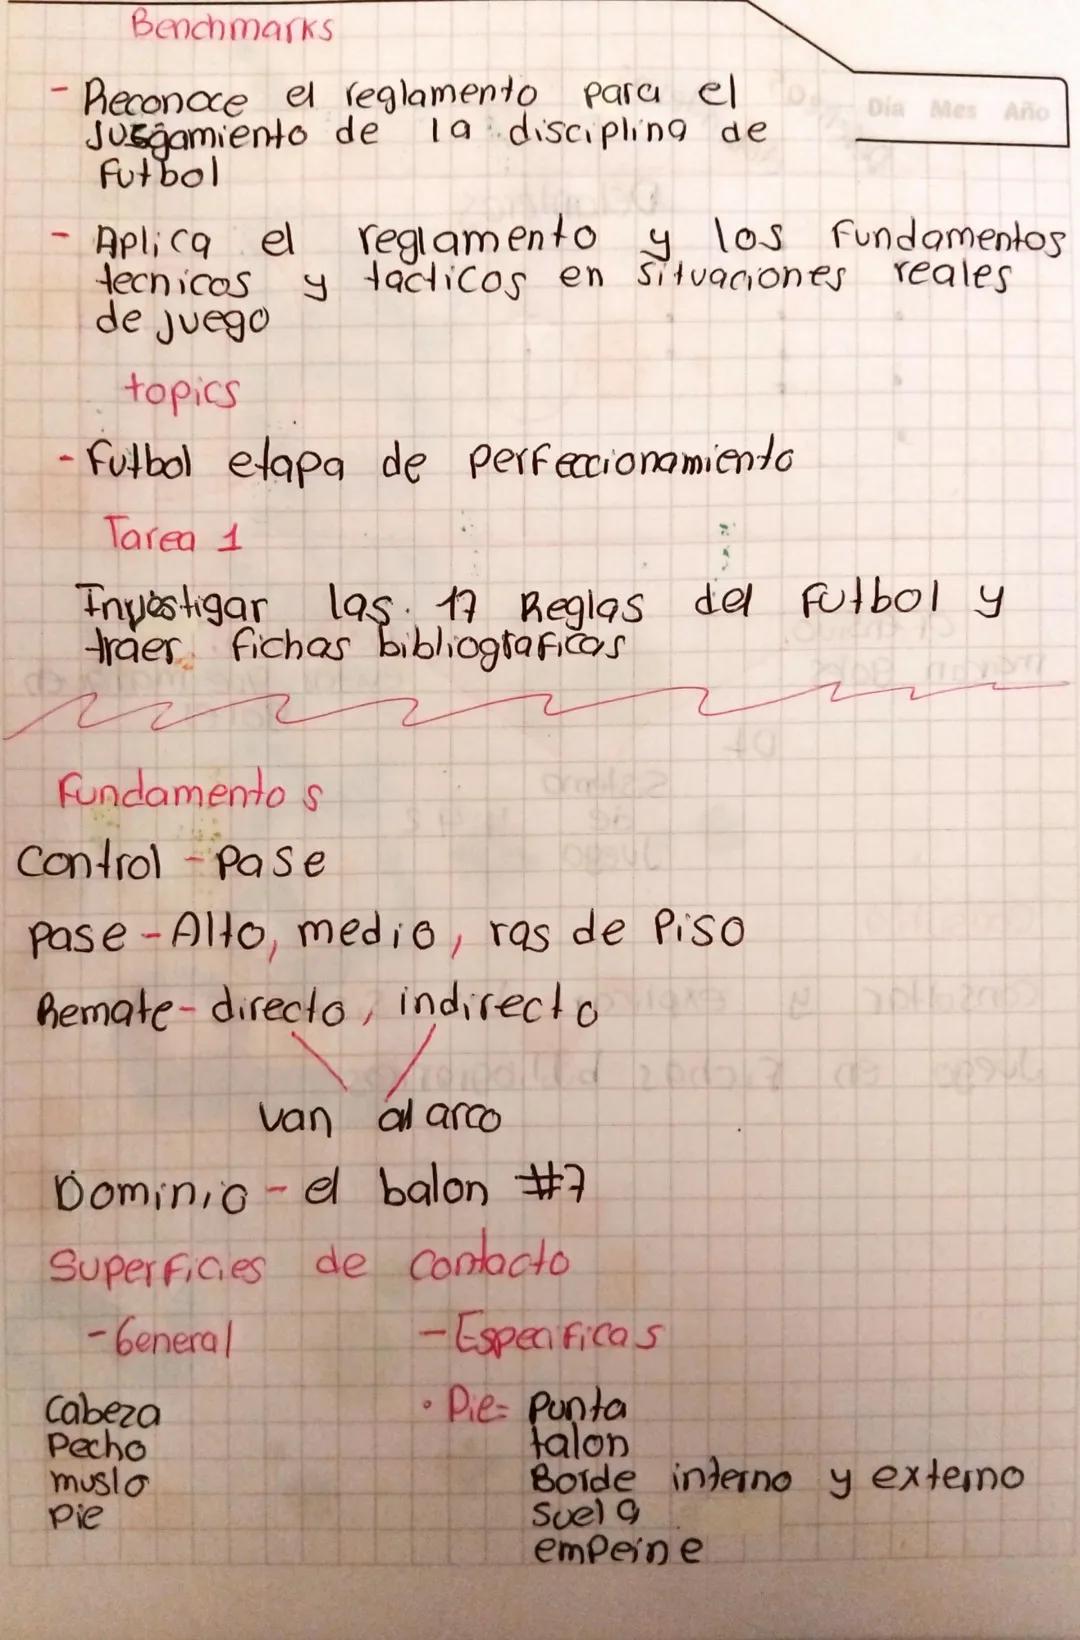 Benchmarks
Día Mes Año
- Reconoce el reglamento para el
Jusgamiento de la disciplina de
futbol
- Aplica el reglamento y los fundamentos
tecnicos y tacticos en situaciones reales
de juego
topics
- Futbol etapa de perfeccionamiento
Tarea 1
Investigar las 17 Reglas del futbol y
traer fichas bibliograficas
Fundamentos
Control - Pase
pase - Alto, medio, ras de Piso
Remate - directo, indirecto
van al arco
Dominio - el balon #7
Superficies de contacto
- General - Especificas
Cabeza • Pie= Punta
Pecho talon
muslo Borde interno y externo
Pie Suela
empeine